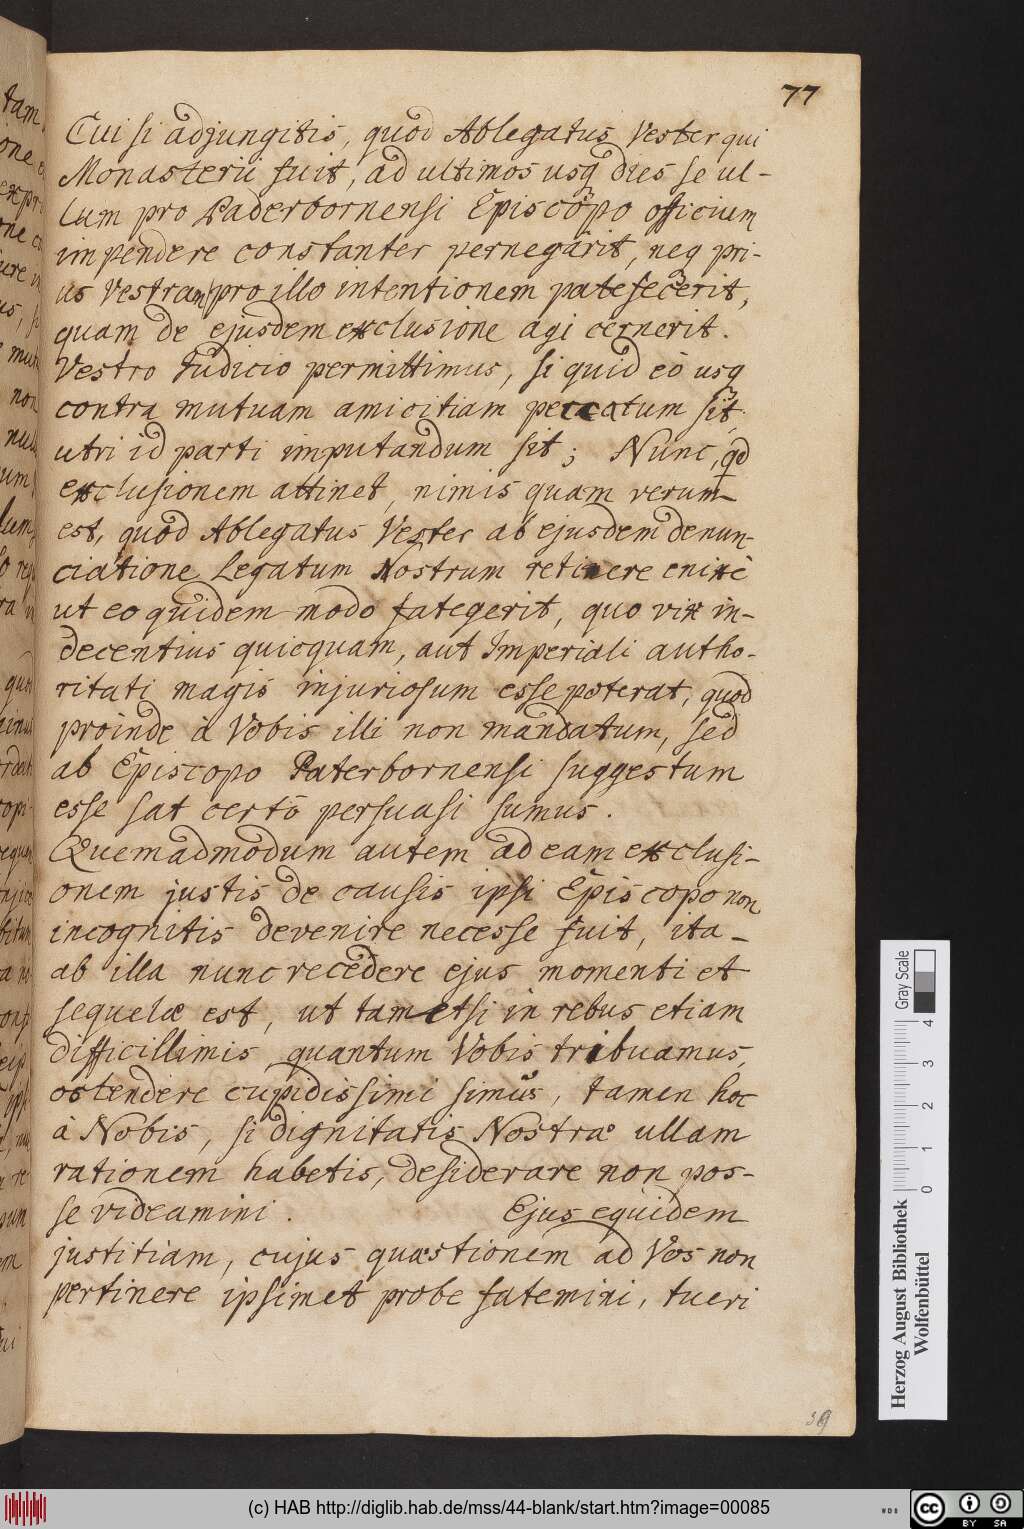 77
Cui si adjungitis, quod Ablegatus Vester qui
Monasterii fuit, ad ultimos usq dies se ul-
lum pro Paderbornensi Episcopo officium
impendere constanter pernegârit, neq pri-
us Vestram pro illo intentionem patefecerit,
quam de ejusdem exclusione agi cernerit.
Vestro Judicio permittimus, si quid eò usq
contra mutuam amicitiam peccatum sit,
utri id parti imputandum sit; Nunc, qd
exclusionem attinet, nimis quam verum
est, quod Ablegatus Vester ab ejusdem denun-
ciatione Legatum Nostrum retinere enixè
ut eo quidem modo sategerit, quo vix in-
decentius quicquam, aut Imperiali autho-
ritati magis injuriosum esse poterat, quod
proinde à Vobis illi non mandatum, sed
ab Episcopo Paterbornensi suggestum
esse sat certò persuasi sumus.
Quemadmodum autem ad eam exclusi-
onem justis de causis ipsi Episcopo non
incognitis devenire necesse fuit, ita
ab illa nunc recedere ejus momenti et
sequelæ est, ut tametsi in rebus etiam
difficillimis quantum Vobis tribuamus,
ostendere cupidissimi simus, tamen hoc
à Nobis, si dignitatis Nostræ ullam
rationem habetis, desiderare non pos-
se videamini. Ejus equidem
justitiam, cujus quæstionem ad Vos non
pertinere ipsimet probe fatemini, tueri
39
Gray Scale
0 1 2 3 4
Herzog August Bibliothek
Wolfenbüttel
(c) HAB http://diglib.hab.de/mss/44-blank/start.htm?image=00085
WDB
cc BY SA